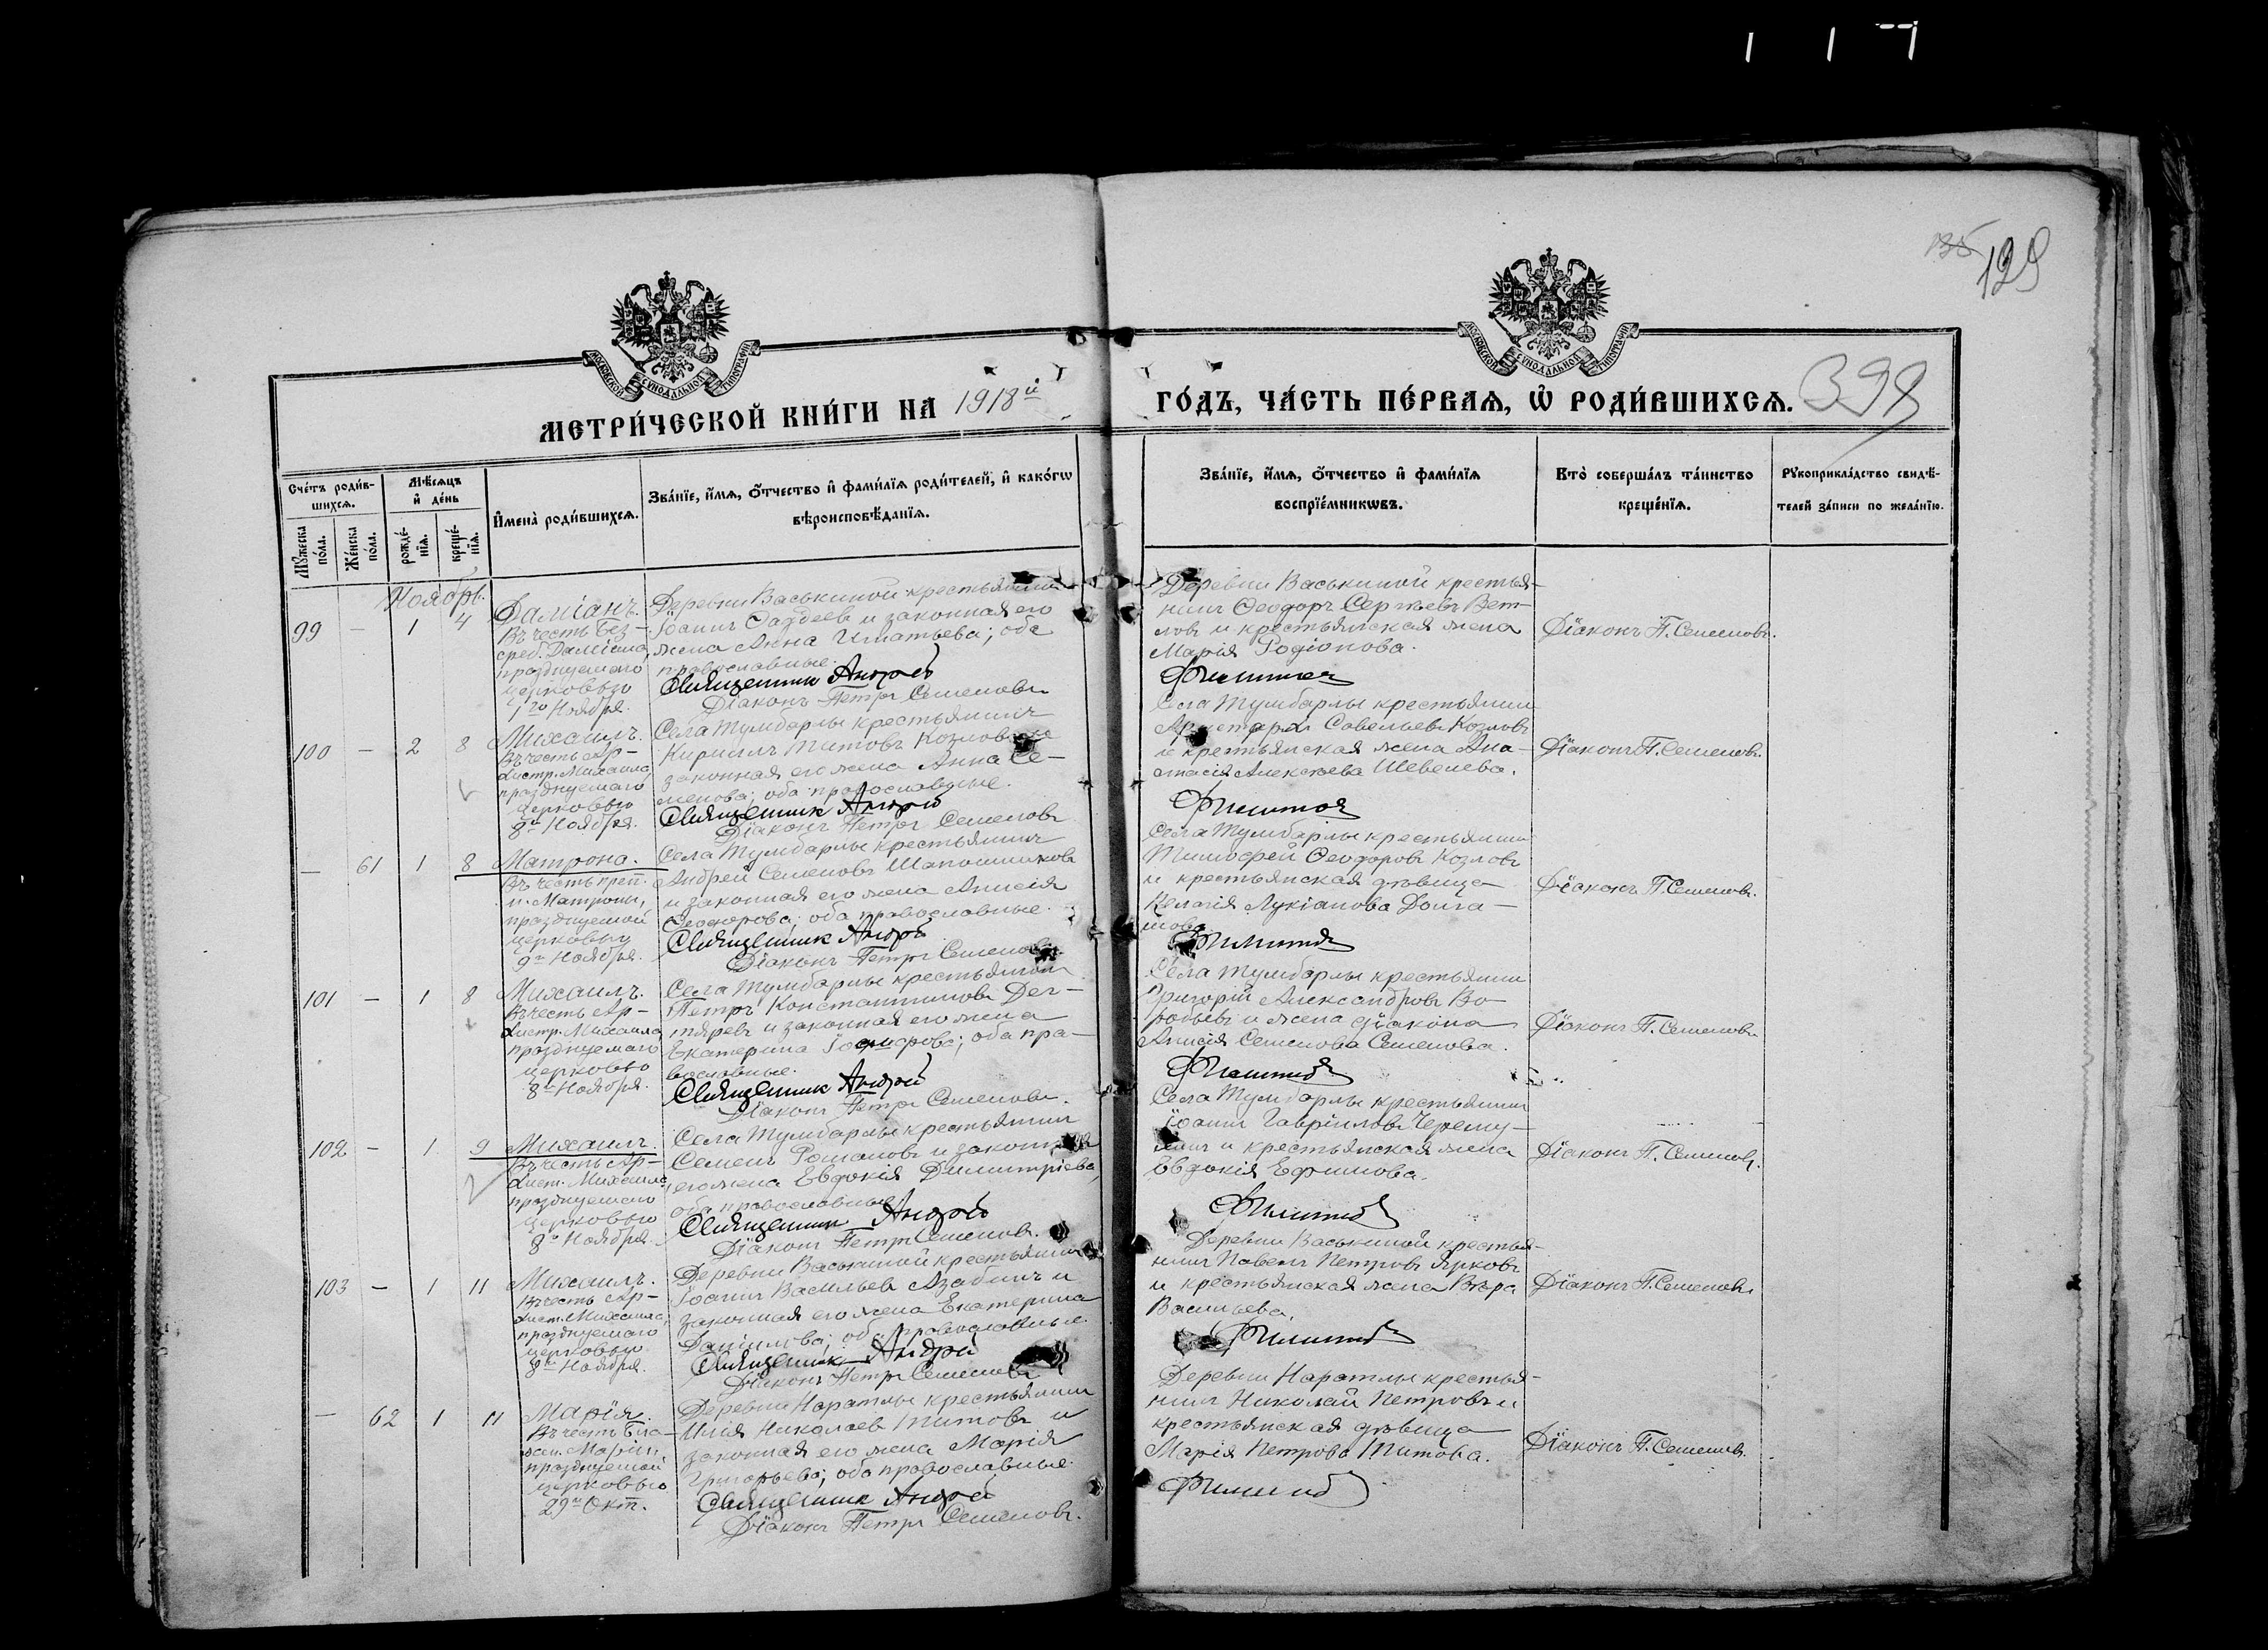 135 129
МОСКОВСКОЙ СУНОДАЛЬНОЙ ТИПОГРАФІИ
МОСКОВСКОЙ СУНОДАЛЬНОЙ ТИПОГРАФІИ
МЕТРИ́ЧЕСКОЙ КНИ́ГИ НА 1918й ГО́ДЪ, ЧА́СТЬ ПЕ́РВАЯ, Ѡ҆ РОДИ́ВШИХСЯ. 398
Сче́тъ роди́в-
шихся.
Мѣ́сяцъ
и҆ де́нь
Мꙋ́жеска
по́ла.
Же́нска
по́ла.
рожде́-
нїя.
креще́-
нїя.
И҆мена̀ роди́вшихся.
Зва́нїе, и҆́мя, ѻ҆́тчество и҆ фами́лїя роди́телей, и҆ како́гѡ
вѣроисповѣ́данїя.
Зва́нїе, и҆́мя, ѻ҆́тчество и҆ фами́лїя
воспрїе́мникѡвъ.
Кто̀ соверша́лъ та́инство
креще́нїя.
Рꙋкоприкла́дство свидѣ́-
телей за́писи по жела́нїю.
Ноябрь.
99 — 1 4
Даміанъ.
Въ честь Без-
среб. Даміана,
празднуемаго
церковью
1го Ноября.
Деревни Васькиной крестьянинъ
Іоаннъ Фаддеевъ и законная его
жена Анна Игнатьева; оба
православные.
Священник Андрей
Діаконъ Петръ Семеновъ
Деревни Васькиной крестья-
нинъ Ѳеодоръ Сергѣевъ Вет-
ловъ и крестьянская жена
Марія Родіонова.
Діаконъ П. Семеновъ.
100 — 2 8
Михаилъ.
Въ честь Ар-
хистр. Михаила,
празднуемаго
церковью
8го Ноября.
Села Тумбарлы крестьянинъ
Кириллъ Титовъ Козловъ и
законная его жена Анна Се-
менова; оба православные.
Священник Андрей
Діаконъ Петръ Семеновъ
Села Тумбарлы крестьянинъ
Аристархъ Савельевъ Козловъ
и крестьянская жена Ана-
стасія Алексѣева Шевелева.
Діаконъ П. Семеновъ.
— 61 1 8
Матрона.
Въ честь преп.
н. Матроны,
празднуемой
церковью
9го Ноября.
Села Тумбарлы крестьянинъ
Андрей Семеновъ Шапошниковъ
и законная его жена Анисія
Ѳеодорова; оба православные.
Священник Андрей
Діаконъ Петръ Семеновъ.
Села Тумбарлы крестьянинъ
Тимофей Ѳеодоровъ Козловъ
и крестьянская дѣвица
Пелагія Лукіанова Долга-
нова.
Діаконъ П. Семеновъ.
101 — 1 8
Михаилъ.
Въ честь Ар-
хистр. Михаила,
празднуемаго
церковью
8го Ноября.
Села Тумбарлы крестьянинъ
Петръ Константиновъ Дег-
тяревъ и законная его жена
Екатерина; оба пра-
вославные.
Священник Андрей
Діаконъ Петръ Семеновъ.
Села Тумбарлы крестьянинъ
Григорій Александровъ Во-
робьевъ и жена діакона
Анисія Семенова Семенова.
Діаконъ П. Семеновъ
102 — 1 9
Михаилъ.
Въ честь Ар-
хист. Михаила,
празднуемаго
церковью
8го Ноября.
Села Тумбарлы крестьянинъ
Семенъ Романовъ и законная
его жена Евдокія Димитріева,
оба православные.
Священник Андрей
Діаконъ Петръ Семеновъ.
Села Тумбарлы крестьянинъ
Іоаннъ Гавріиловъ Черему-
хинъ и крестьянская жена
Евдокія Ефимова.
Діаконъ П. Семеновъ.
103 — 1 11
Михаилъ.
Въ честь Ар-
хист. Михаила,
празднуемаго
церковью
8го Ноября.
Деревни Васькиной крестьянинъ
Іоаннъ Васильевъ Азабинъ и
законная его жена Екатерина
Даніилова; оба православные.
Священник Андрей
Діаконъ Петръ Семеновъ
Деревни Васькиной крестья-
нинъ Павелъ Петровъ Ярковъ
и крестьянская жена Вѣра
Васильева.
Діаконъ П. Семеновъ.
— 62 1 11
Марія.
Въ честь
Маріи,
празднуемой
церковью
29го Окт.
Деревни Наратлы крестьянинъ
Илія Николаевъ Титовъ и
законная его жена Марія
Григорьева; оба православные.
Священник Андрей
Діаконъ Петръ Семеновъ.
Деревни Наратлы крестья-
нинъ Николай Петровъ и
крестьянская дѣвица
Марія Петрова Титова.
Діаконъ П. Семеновъ.